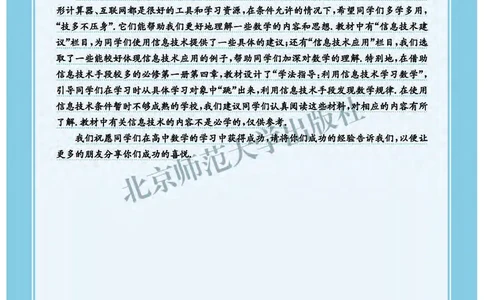 形计算器、互联网都是很好的工具和学习资源,在条件允许的情况下,希望同学们多学多用,
“技多不压身”.它们能帮助我们更好地理解一些数学的内容和思想.教材中有“信息技术建
议”栏目,为同学们使用信息技术提供了一些具体的建议;还有“信息技术应用”栏目,我们选
取了一些能较好体现信息技术应用的例子,帮助同学们加深对数学的理解.特别地,在借助
信息技术手段较多的必修第一册第四章,教材设计了“学法指导:利用信息技术学习数学”,
引导同学们在学习时从具体学习对象中“跳”出来,利用信息技术手段发现数学规律.在使用
信息技术条件暂时不够成熟的学校,我们建议同学们认真阅读这些材料,对相应的内容有所
了解.教材中有关信息技术的内容不是必学的,仅供参考.
我们祝愿同学们在高中数学的学习中获得成功,请将你们成功的经验告诉我们,以便让
更多的朋友分享你们成功的喜悦.
北京师范大学出版社